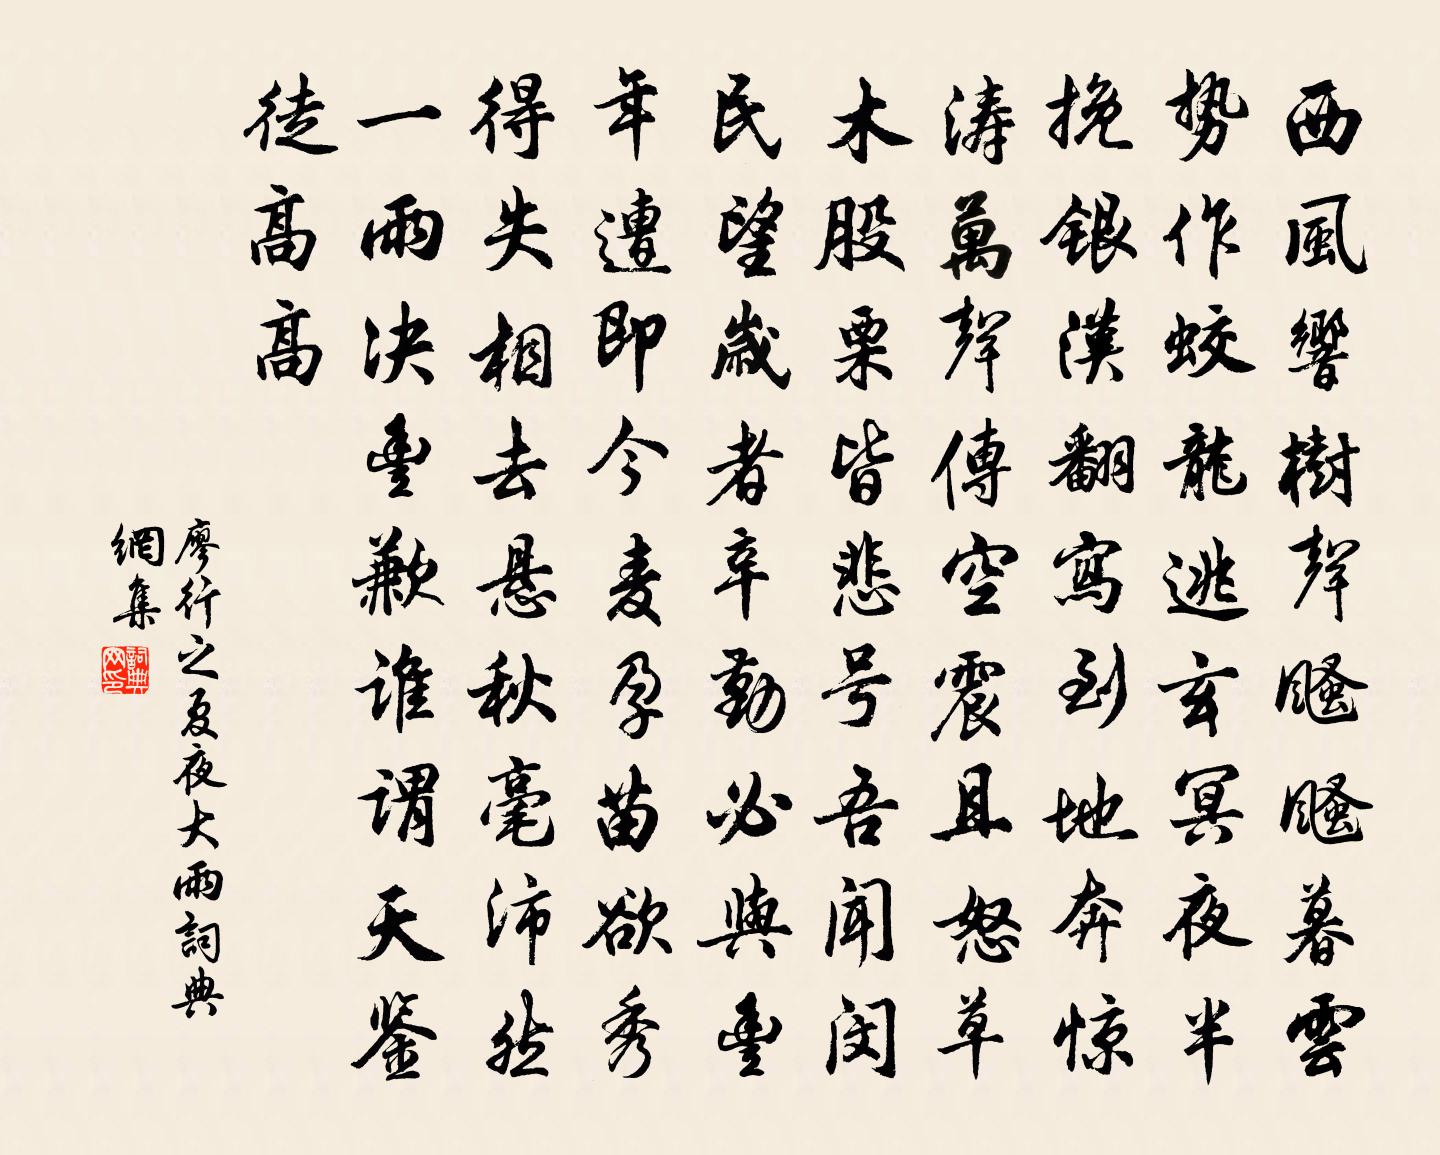 西風響樹聲颾颾暮雲
势作蛟龍逃玄冥夜半
挽銀漢翻寫到地奔惊
濤萬聲傳空震且怒草
木股栗皆悲号吾聞閔
民望歲者辛勤必與豐
年遭即今麦孕苗欲秀
得失相去悬秋毫沛然
一雨決豐歉誰謂天鑒
徒高高
廖行之夏夜大雨詞典
網集
詞典
网印